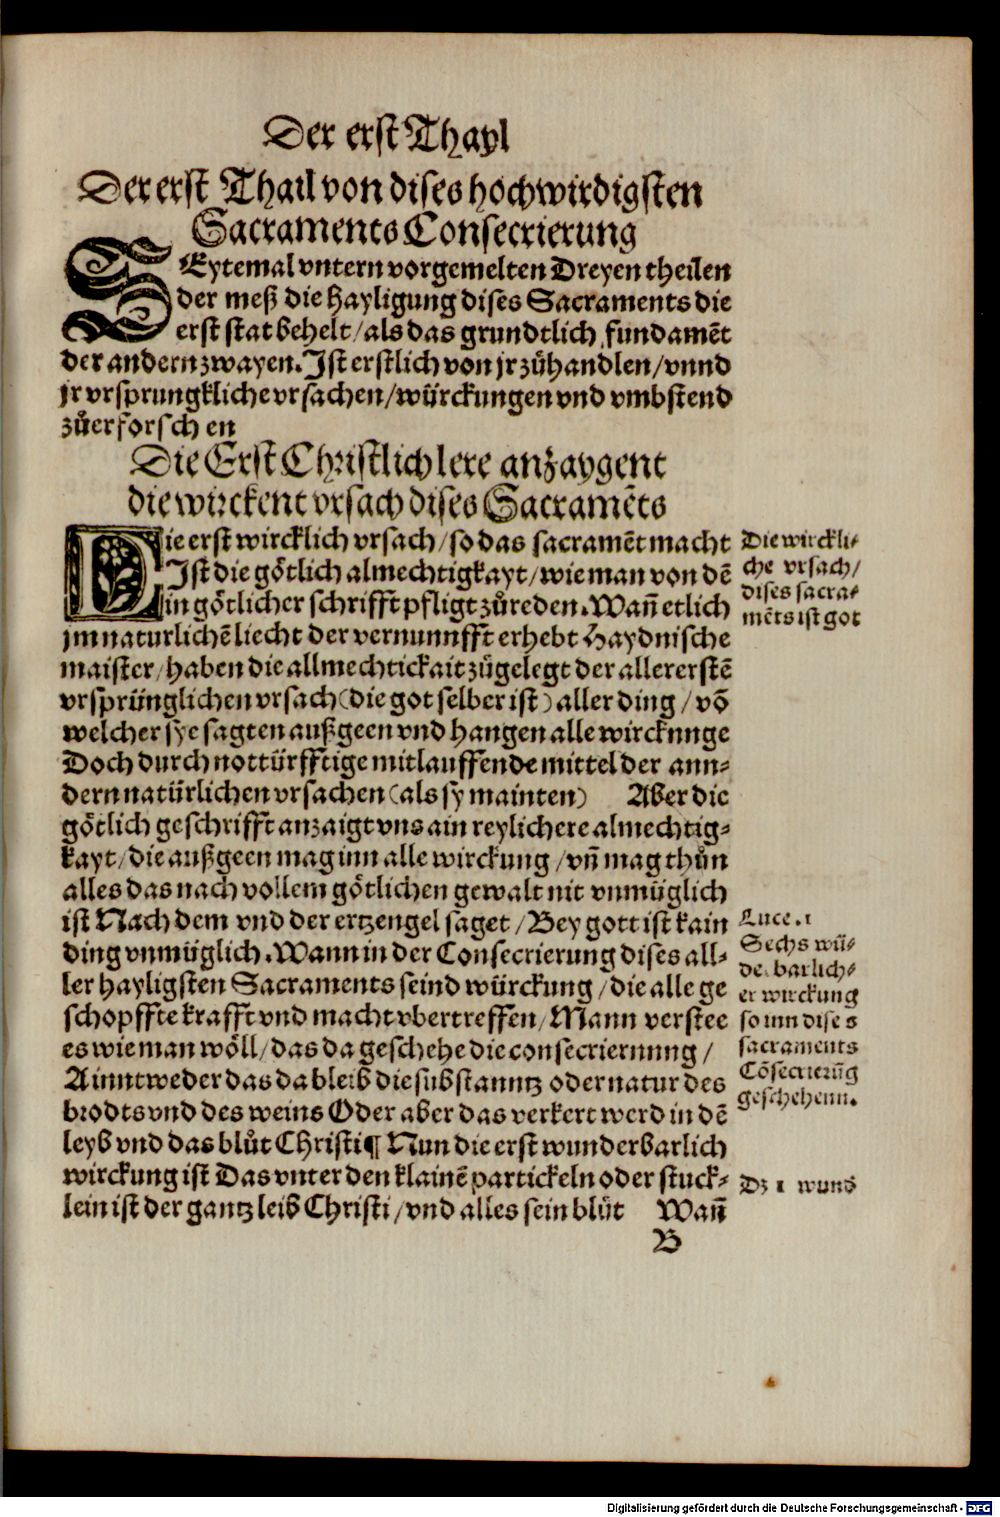 Der erst Thayl
Der erst Thail von dises hochwirdigsten
Sacraments Consecrierung
SEytemal vntern vorgemelten Dreyen theilen
der meß die Hayligung dises Sacraments die
erst stat behelt/als das grundtlich fundamēt
der andern zwayen. Ist erstlich von jr zůhandlen/vnnd
jr vrsprungkliche vrsachen/würckungen vnd vmbstend
zůerforschen
Die Erst Christlich lere anzaygent
die wirckent vrsach dises Sacramēts
Die erst wircklich vrsach/so das sacramēt macht
Ist die götlich almechtigkayt/wie man von dē
in götlicher schrifft pfligt zůreden. Wañ etlich
jm naturlichē liecht der vernunnfft erhebt Haydnische
maister/haben die allmechtickait zůgelegt der allererstē
vrsprünglichen vrsach (die got selber ist) aller ding/vō
welcher sye sagten außgeen vnd hangen alle wircknnge
Doch durch nottürfftige mitlauffende mittel der ann-
dern natürlichen vrsachen (als sy mainten) Aber die
götlich geschrifft anzaigt vns ain reylichere almechtig-
kayt/die außgeen mag inn alle wirckung/vñ mag thůn
alles das nach vollem götlichen gewalt nit vnmüglich
ist Nach dem vnd der ertzengel saget/Bey gott ist kain
ding vnmüglich. Wann in der Consecrierung dises all-
ler hayligsten Sacraments seind würckung/die alle ge
schopffte krafft vnd macht vbertreffen/Mann verstee
es wie man wöll/das da geschehe die consecriernung/
Ainntweder das da bleib die substanntz oder natur des
brodts vnd des weins Oder aber das verkert werd in dē
leyb vnd das blůt Christi¶ Nun die erst wunderbarlich
wirckung ist Das vnter den klainē partickeln oder stuck-
lein ist der gantz leib Christi/vnd alles sein blůt Wañ
B
Die wirckli-
che vrsach/
dises sacra-
mēts ist got
Luce. 1
Sechs wū-
derbarlich-
er wirckung
so inn dises
sacraments
Cōsecrierūg
geschehenn.
Dz 1 wund
Digitalisierung gefördert durch die Deutsche Forschungsgemeinschaft - DFG